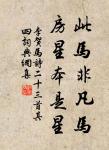 此馬非凡馬
房星本是星
李賀馬詩二十三首其
四詞典網集